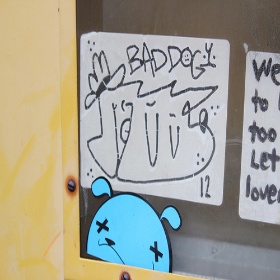 BAD DOG
12
We
to
too
Let
lover